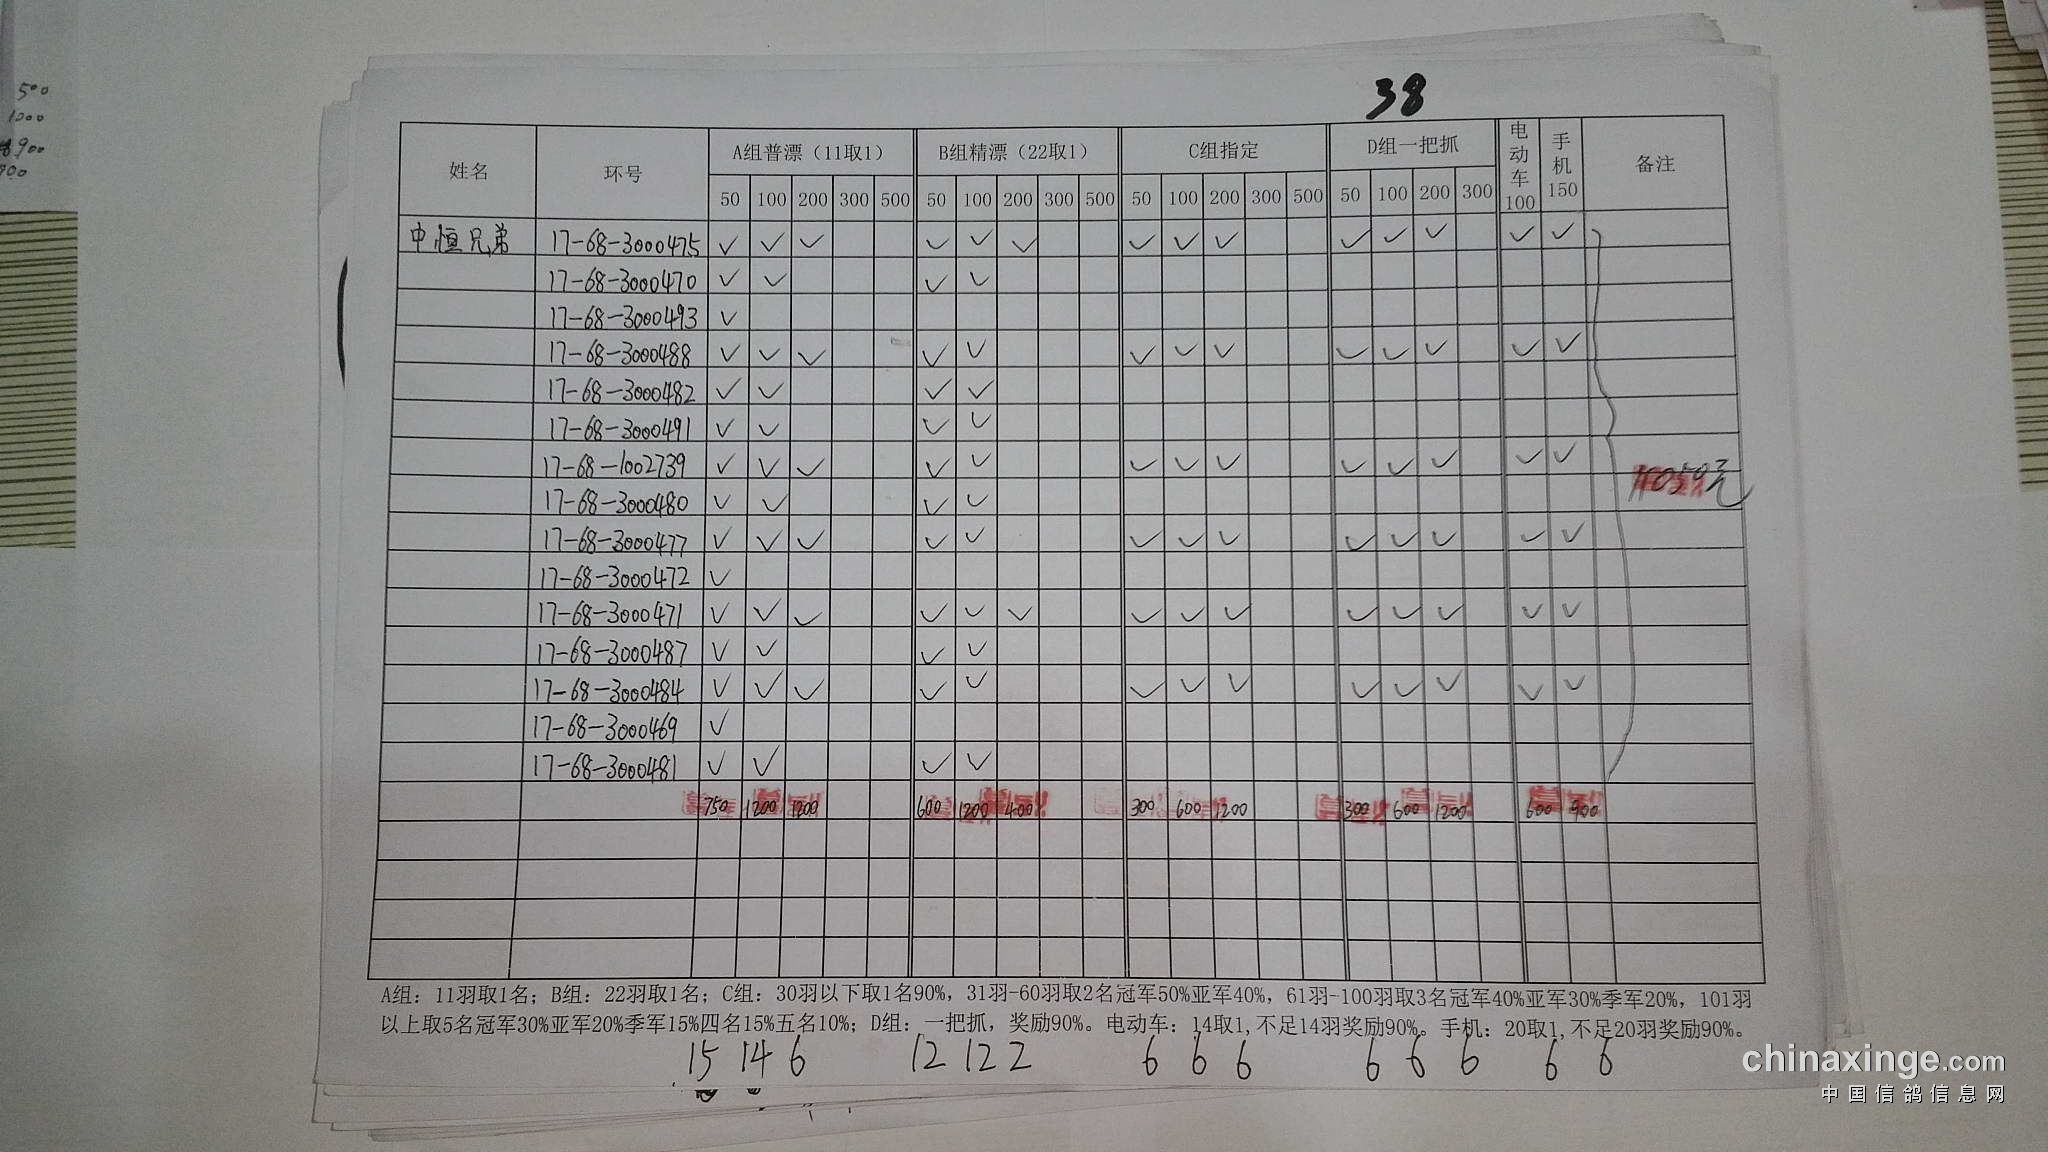 500
1200
900
900
38
姓名 环号 A组普漂（11取1） B组精漂（22取1） C组指定 D组一把抓 电动车100 手机150 备注
50 100 200 300 500 50 100 200 300 500 50 100 200 300 500 50 100 200 300
中恒兄弟 17-68-3000475 ✓ ✓ ✓ ✓ ✓ ✓ ✓ ✓ ✓ ✓ ✓ ✓ ✓ ✓
17-68-3000470 ✓ ✓ ✓ ✓
17-68-3000493 ✓
17-68-3000488 ✓ ✓ ✓ ✓ ✓ ✓ ✓ ✓ ✓ ✓ ✓ ✓ ✓
17-68-3000482 ✓ ✓ ✓ ✓
17-68-3000491 ✓ ✓ ✓ ✓
17-68-1002739 ✓ ✓ ✓ ✓ ✓ ✓ ✓ ✓ ✓ ✓ ✓ ✓ ✓
11050元
17-68-3000480 ✓ ✓ ✓ ✓
17-68-3000477 ✓ ✓ ✓ ✓ ✓ ✓ ✓ ✓ ✓ ✓ ✓ ✓ ✓
17-68-3000472 ✓
17-68-3000471 ✓ ✓ ✓ ✓ ✓ ✓ ✓ ✓ ✓ ✓ ✓ ✓ ✓ ✓
17-68-3000487 ✓ ✓ ✓ ✓
17-68-3000484 ✓ ✓ ✓ ✓ ✓ ✓ ✓ ✓ ✓ ✓ ✓ ✓ ✓
17-68-3000469 ✓
17-68-3000481 ✓ ✓ ✓ ✓
750 1200 1200 600 1200 400 300 600 1200 300 600 1200 600 900
A组：11羽取1名；B组：22羽取1名；C组：30羽以下取1名90%，31羽-60羽取2名冠军50%亚军40%，61羽-100羽取3名冠军40%亚军30%季军20%，101羽
以上取5名冠军30%亚军20%季军15%四名15%五名10%；D组：一把抓，奖励90%。电动车：14取1,不足14羽奖励90%。手机：20取1,不足20羽奖励90%。
15 14 6 12 12 2 6 6 6 6 6 6 6 6
chinaxinge.com
中国信鸽信息网